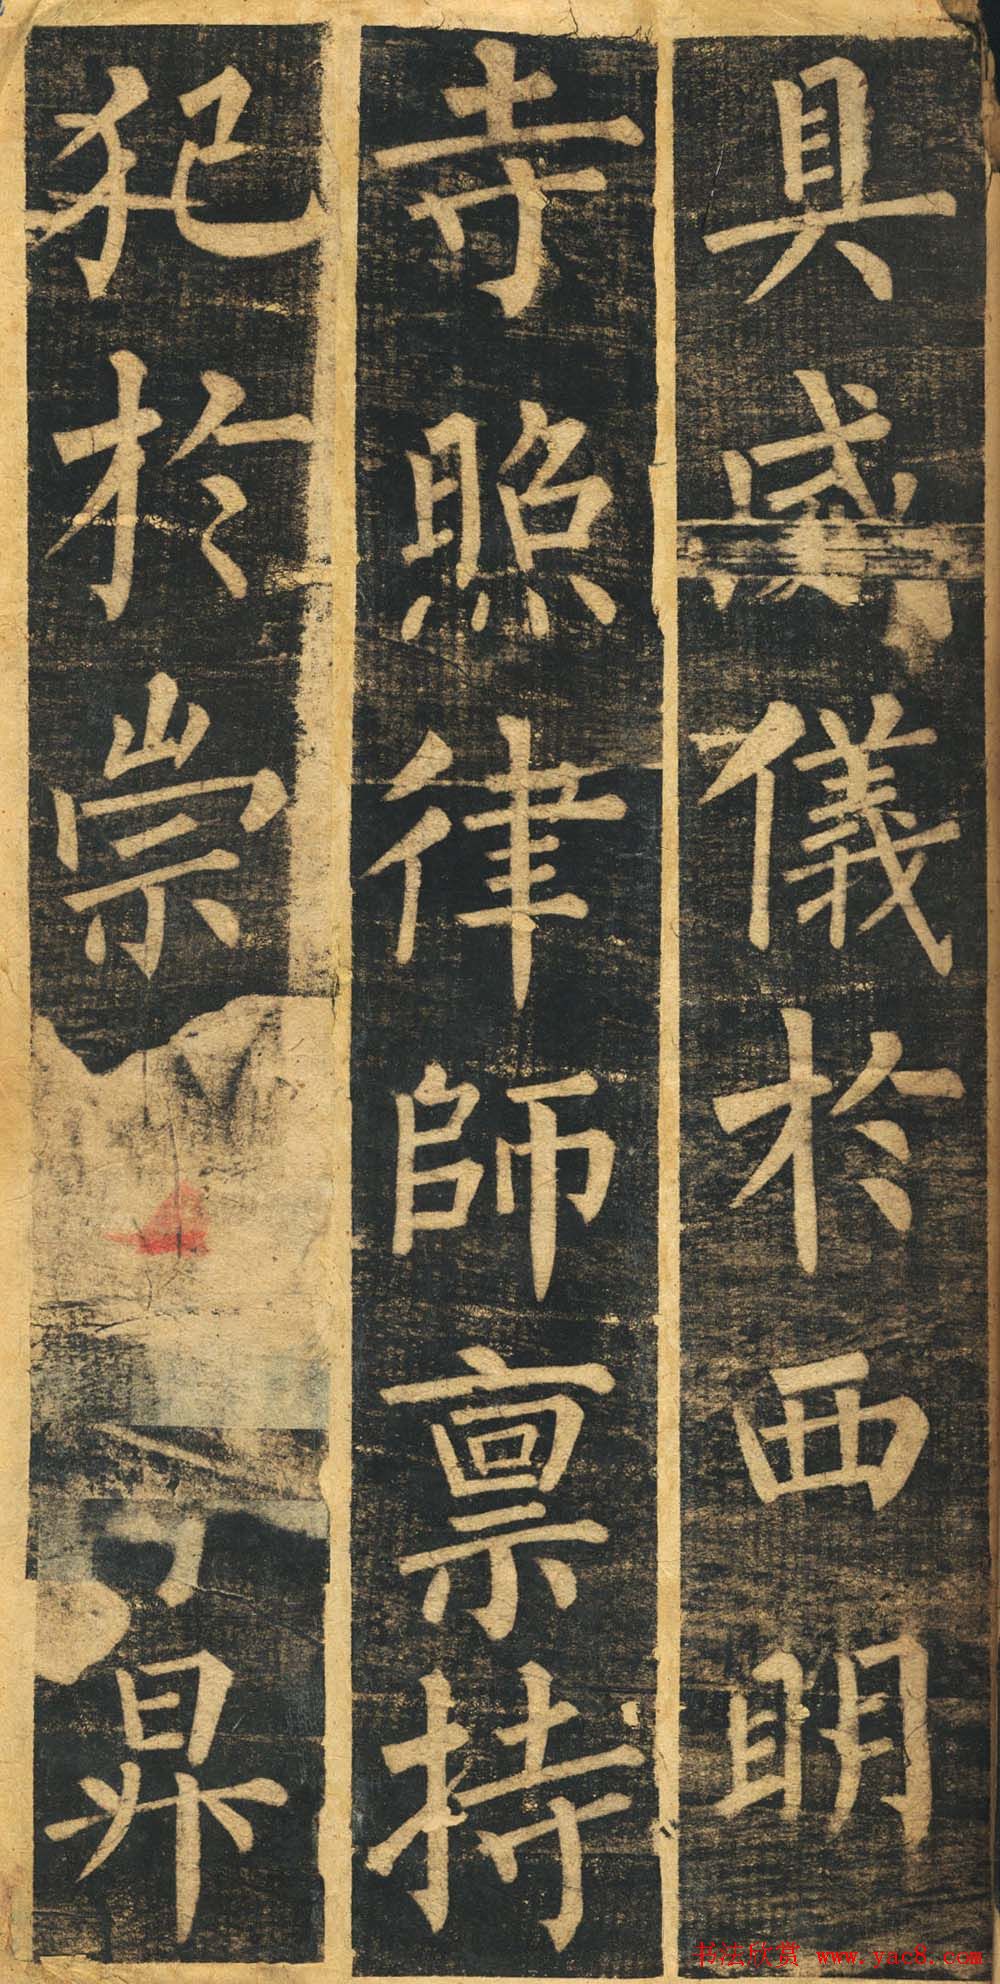 具威儀於西明
寺照律師稟持
犯於崇昇
书法欣赏 www.yac8.com